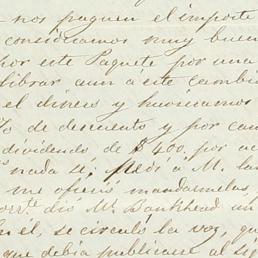 nos paguen el importe
consideramos muy buen
por este Paquete por una
librar aun á este cambio
el dinero y hicieramos
% de descuento y por cam
dividendo de $400, por ac
nada sé; Pedi a M. la
me ofreció mandarmelas,
corrte. dió Mr. Bankhead un
en él, se circuló la voz, qu
que debia publicarse al si